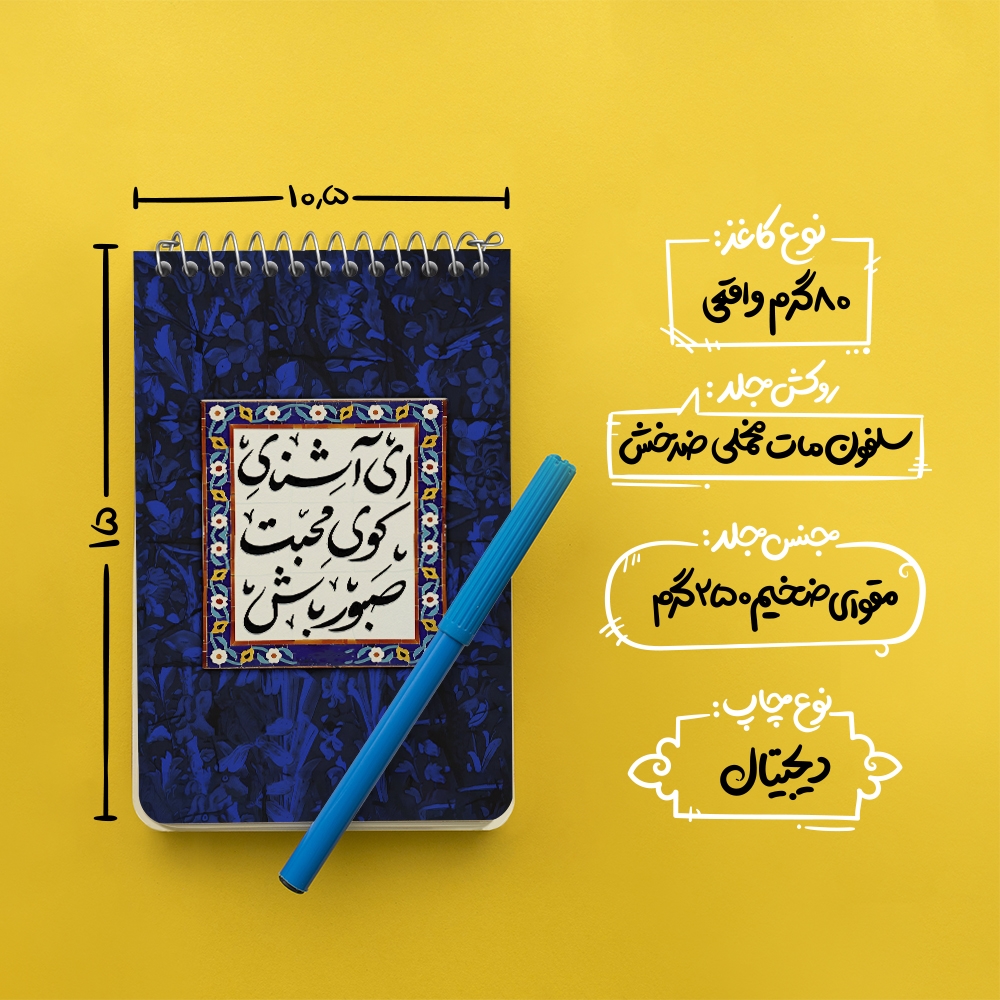 ۱۰٫۵
۱۵
ای آشنای
کوی محبت
صبور باش
نوع کاغذ:
۸۰ گرم واقعی
روکش جلد:
سلفون مات مخملی ضدخش
جنس جلد:
مقوای ضخیم ۲۵۰ گرم
نوع چاپ:
دیجیتال